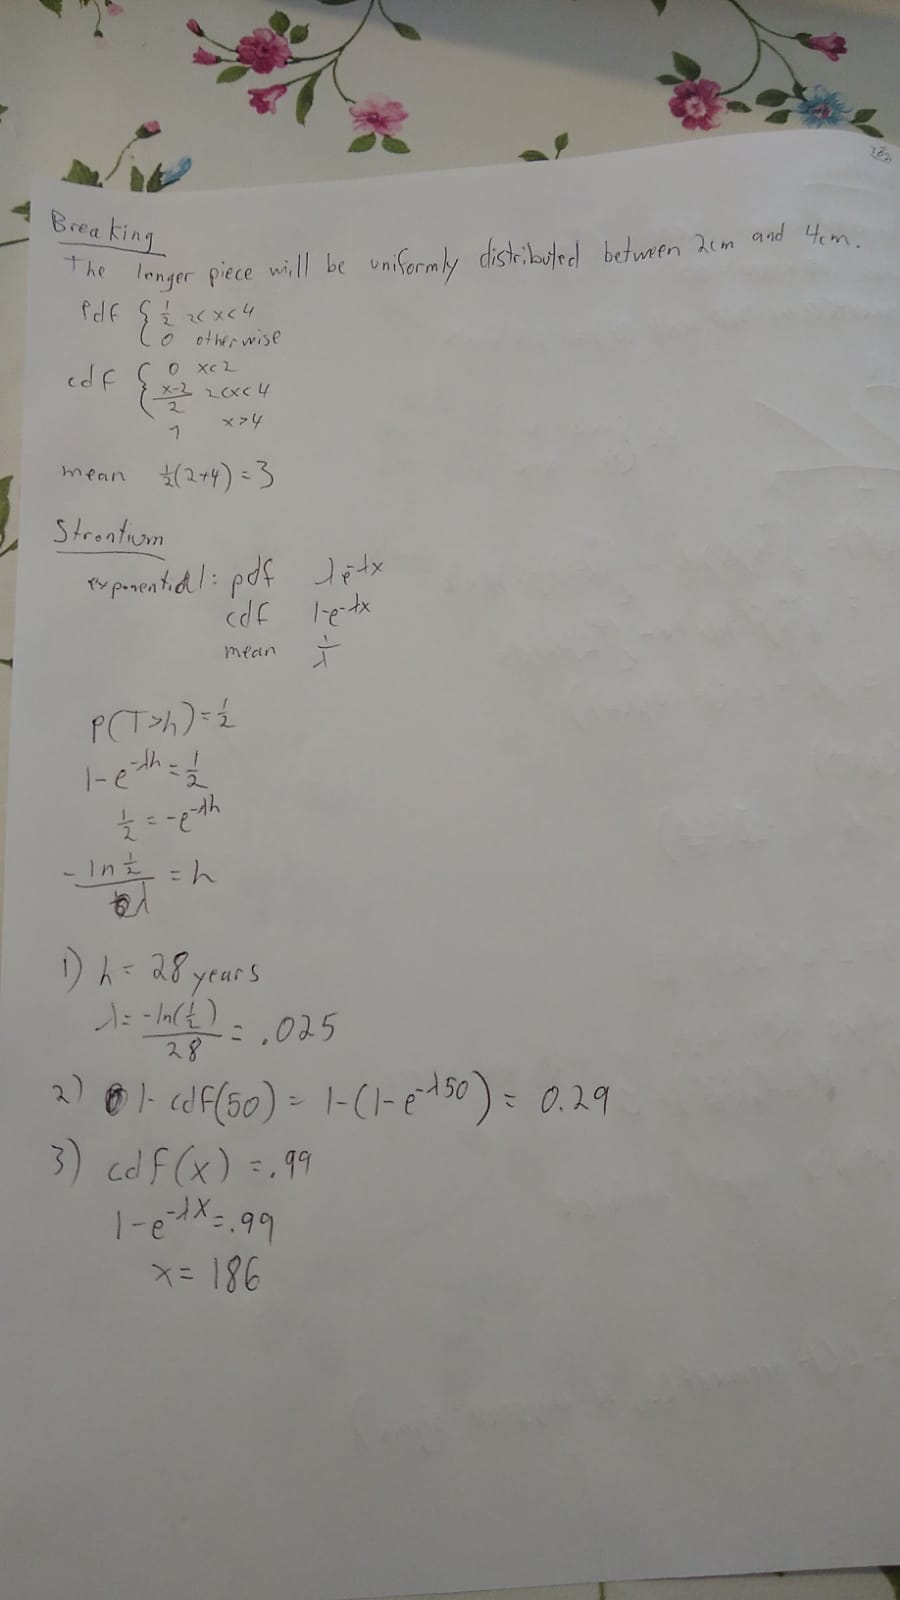 Breaking
The longer piece will be uniformly distributed between 2cm and 4cm.
Pdf { 1/2 2<x<4
0 otherwise
cdf { 0 x<2
(x-2)/2 2<x<4
1 x>4
mean 1/2(2+4)=3
Strontium
exponential: pdf λe^-λx
cdf 1-e^-λx
mean 1/λ
P(T>h)=1/2
1-e^-λh=1/2
1/2=-e^-λh
-ln 1/2 / λ = h
1) h= 28 years
λ= -ln(1/2)/28 = .025
2) 1- cdf(50) = 1-(1-e^-λ50) = 0.29
3) cdf(x) =.99
1-e^-λx=.99
x= 186